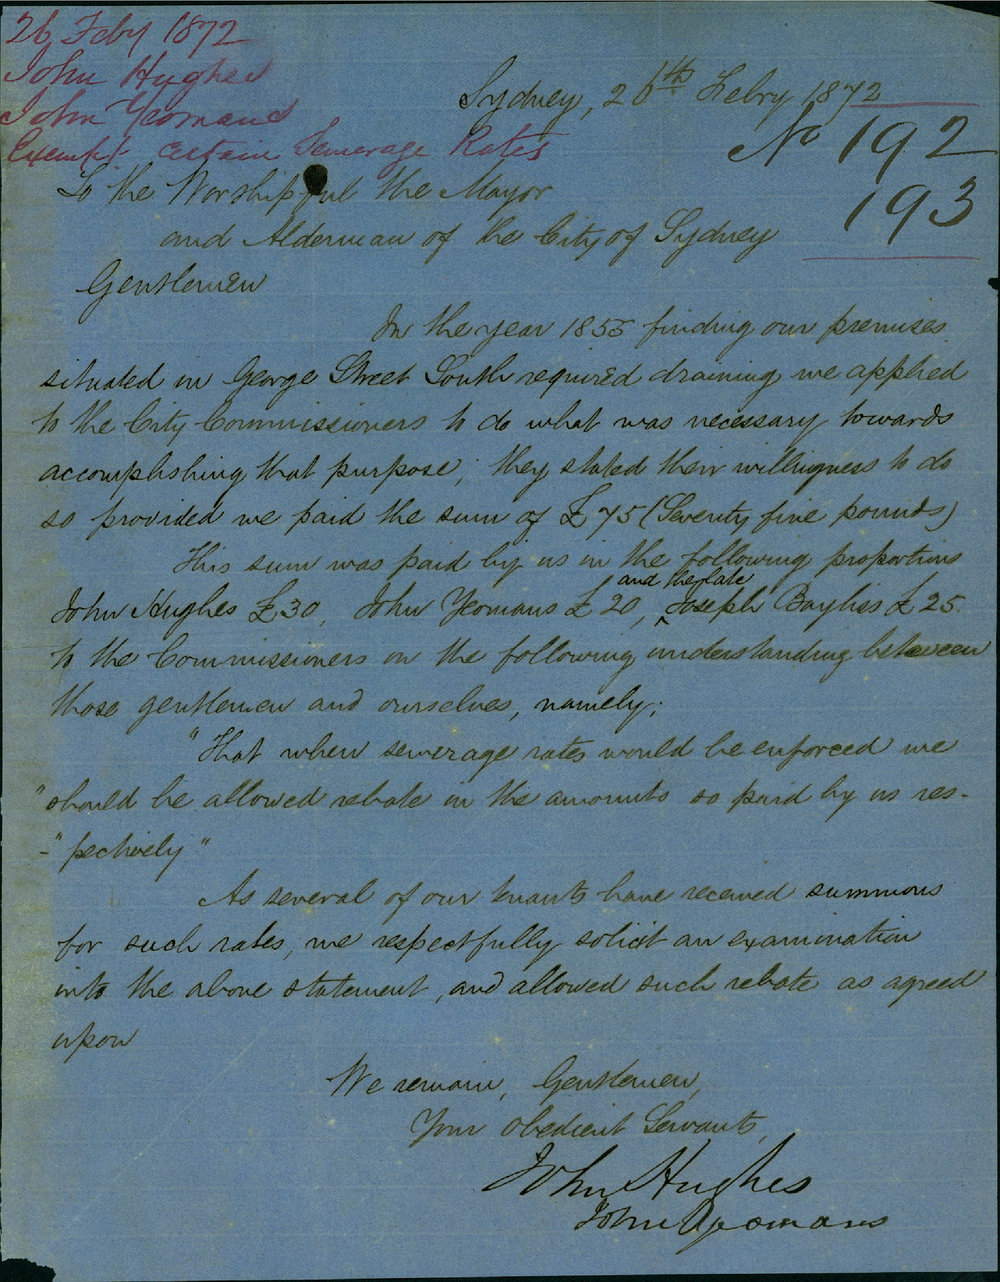 26 Feby 1872
John Hughes
John Yeomans
Exempt certain Sewerage Rates
Sydney, 26th Febry 1872
No 192
193
To the Worshipful the Mayor
and Alderman of the City of Sydney
Gentlemen
In the year 1855 finding our premises
situated in George Street South required draining we applied
to the City Commissioners to do what was necessary towards
accomplishing that purpose; they stated their willingness to do
so provided we paid the sum of £75 (Seventy five pounds)
This sum was paid by us in the following proportions
John Hughes £30, John Yeomans £20, and the late Joseph Bayliss £25.
to the Commissioners on the following understanding between
those gentlemen and ourselves, namely;
"That when sewerage rates would be enforced we
"should be allowed rebate in the amounts so paid by us res-
-"pectively"
As several of our tenants have received summons
for such rates, we respectfully solicit an examination
into the above statement, and allowed such rebate as agreed
upon
We remain, Gentlemen,
Your obedient Servants,
John Hughes
John Yeomans